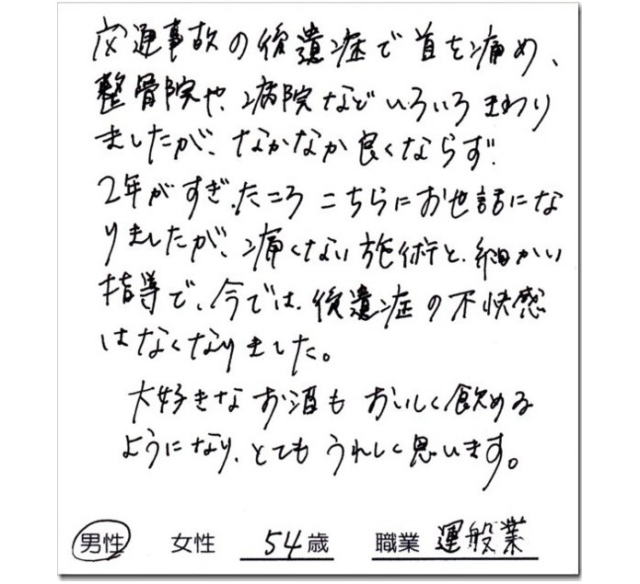 交通事故の後遺症で首を痛め、
整骨院や、病院などいろいろまわり
ましたが、なかなか良くならず、
2年がすぎ、たころこちらにお世話にな
りましたが、痛くない施術と、細かい
指導で、今では、後遺症の不快感
はなくなりました。
大好きなお酒もおいしく飲める
ようになり、とてもうれしく思います。
男性 女性 54歳 職業 運般業